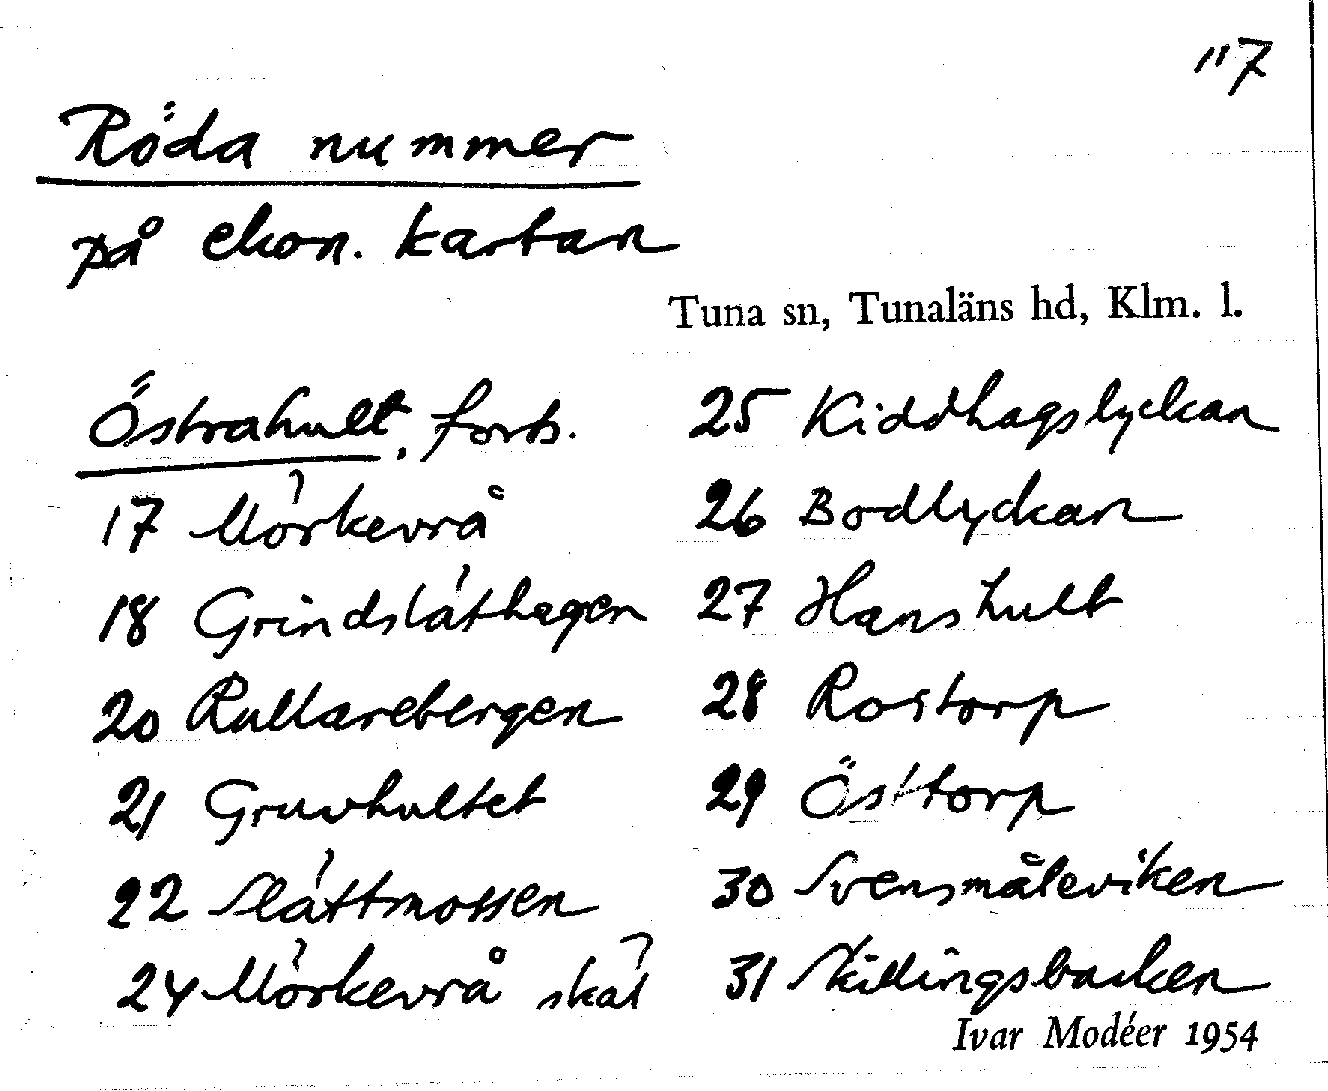 "7
Röda nummer
på ekon. kartan
Tuna sn, Tunaläns hd, Klm. l.
Östrahult, forts.
17 Mörkevrå
18 Grindslåthagen
20 Rullarebergen
21 Gruvhultet
22 Slåttmossen
24 Mörkevrå skäl
25 Kiddhagslyckan
26 Bodlyckan
27 Hanshult
28 Rostorp
29 Östtorp
30 Svensmåleviken
31 Skillingsbacken
Ivar Modéer 1954